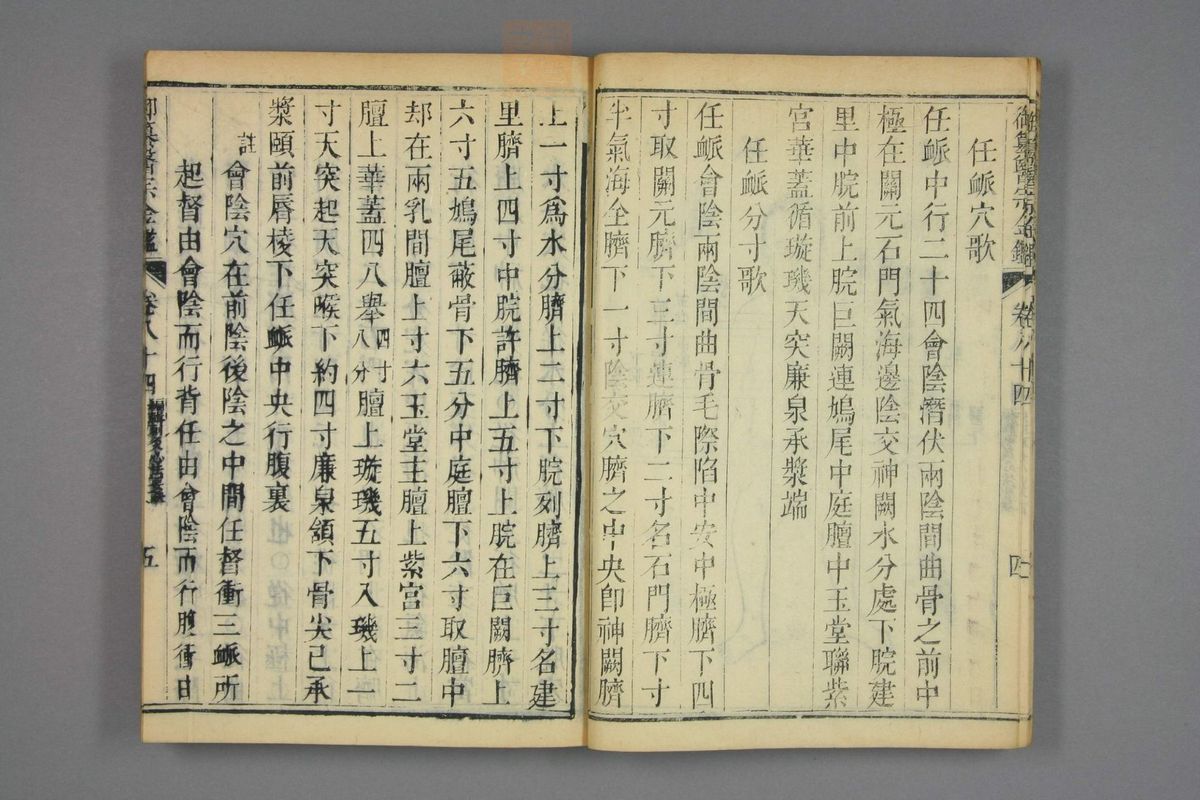 御纂醫宗金鑑 卷八十四 四
任脈穴歌
任脈中行二十四會陰潛伏兩陰間曲骨之前中
極在關元石門氣海邊陰交神闕水分處下脘建
里中脘前上脘巨闕連鳩尾中庭膻中玉堂聯紫
宮華蓋循璇璣天突廉泉承漿端
任脈分寸歌
任脈會陰兩陰間曲骨毛際陷中安中極臍下四
寸取關元臍下三寸連臍下二寸名石門臍下寸
半氣海全臍下一寸陰交穴臍之中央卽神闕臍
上一寸爲水分臍上二寸下脘列臍上三寸名建
里臍上四寸中脘許臍上五寸上脘在巨闕臍上
六寸五鳩尾蔽骨下五分中庭膻下六寸取膻中
却在兩乳間膻上寸六玉堂主膻上紫宮三寸二
膻上華蓋四八舉四寸八分膻上璇璣五寸八璣上一
寸天突起天突喉下約四寸廉泉頷下骨尖已承
漿頤前唇棱下任脈中央行腹裏
註會陰穴在前陰後陰之中間任督衝三脈所
起督由會陰而行背任由會陰而行腹衝由
御纂醫宗金鑑 卷八十四 五